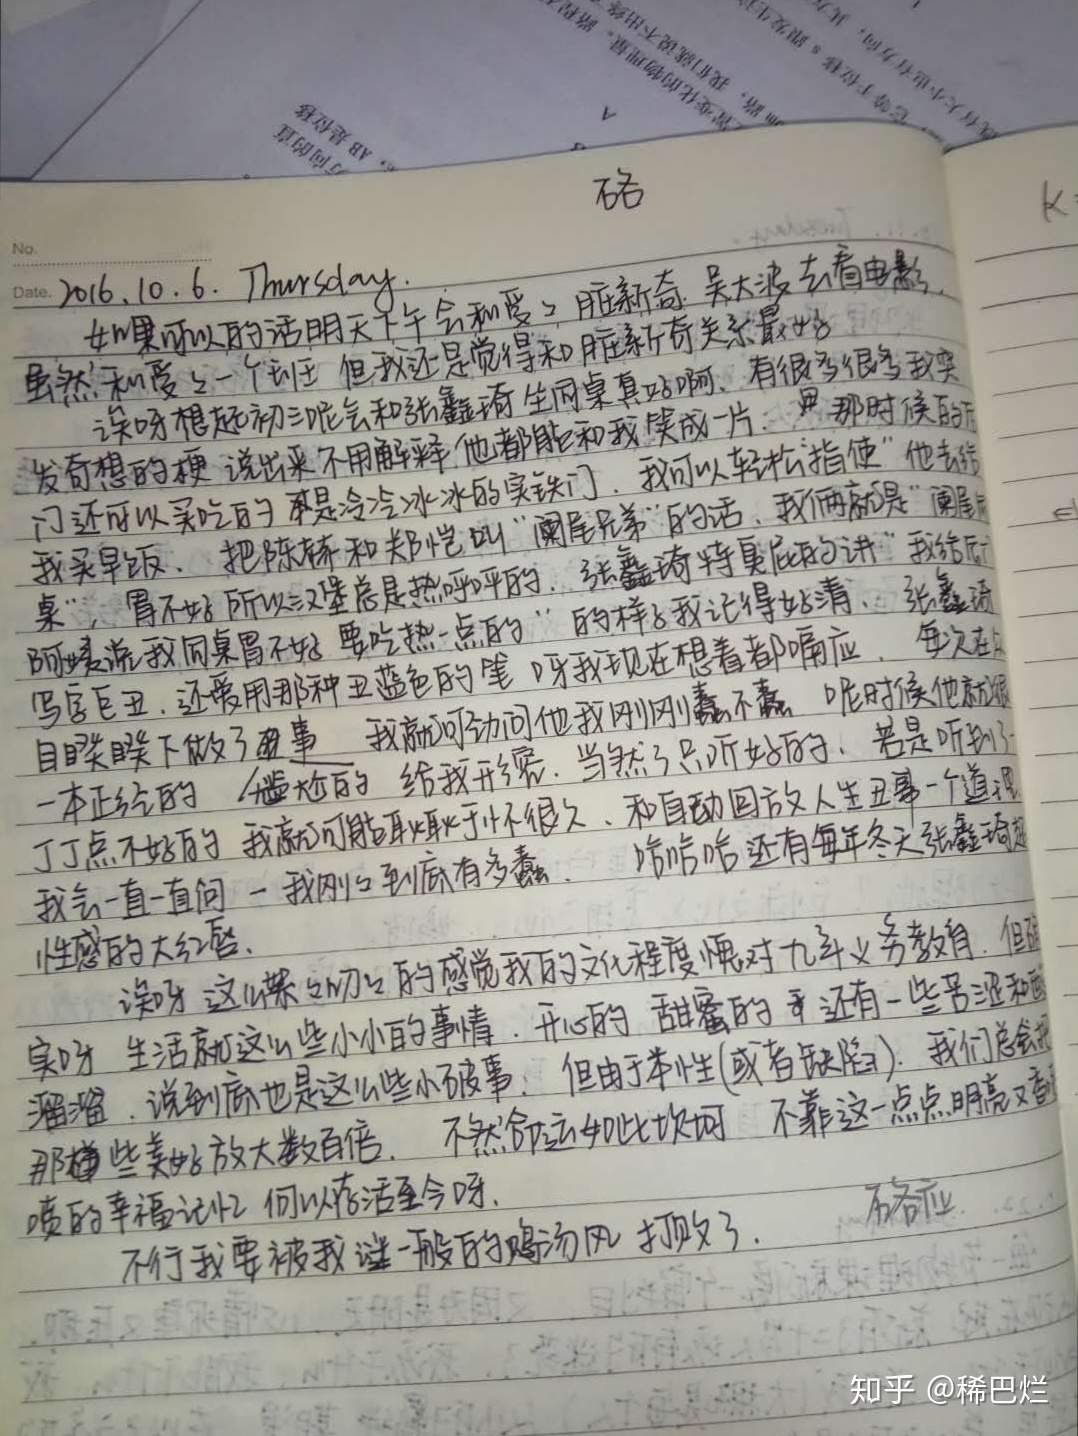 硌
No.
Date. 2016.10.6. Thursday.
如果可以的话明天下午会和爱爱、脏新奇、吴大波去看电影.
虽然和爱爱一个到王 但我还是觉得和脏新奇关系最好
诶呀想起初三呢会和张鑫琦坐同桌真好啊、有很多很多我突
发奇想的梗 说出来不用解释他都能和我笑成一片. 那时候的后
门还可以买吃的 不是冷冷冰冰的实铁门、我可以轻松"指使"他去给
我买早饭、把陈赫和郑恺叫"阑尾兄弟"的话、我俩就是"阑尾同
桌", 胃不好所以汉堡总是热呼呼的、张鑫琦特臭屁的讲"我给后门
阿姨说我同桌胃不好 要吃热一点的"的样子我记得好清、张鑫琦
写字巨丑、还爱用那种丑蓝色的笔 呀我现在想着都嗝应、每次在
目睽睽下做了丑事 我就可劲问他我刚刚蠢不蠢 呢时候他就很
一本正经的 尴尬的 给我形容. 当然了只听好的、若是听到了一
丁丁点不好的 我就可能耿耿于怀很久、和自动回放人生丑事一个道理
我会一直一直问 — 我刚刚到底有多蠢. 哈哈哈还有每年冬天张鑫琦
性感的大红唇.
诶呀 这么紧紧切切的感觉我的文化程度愧对九年义务教育. 但
实呀 生活就这么些小小的事情. 开心的 甜蜜的 还有一些苦涩和酸
溜溜. 说到底也是这么些小破事. 但由于本性(或者缺陷). 我们总会把
那些美好放大数百倍. 不然命运如此坎坷 不靠这一点点明亮又香
喷的幸福记忆 何以存活至今呀.
硌应
不行我要被我谜一般的鸡汤风打败了.
知乎 @稀巴烂